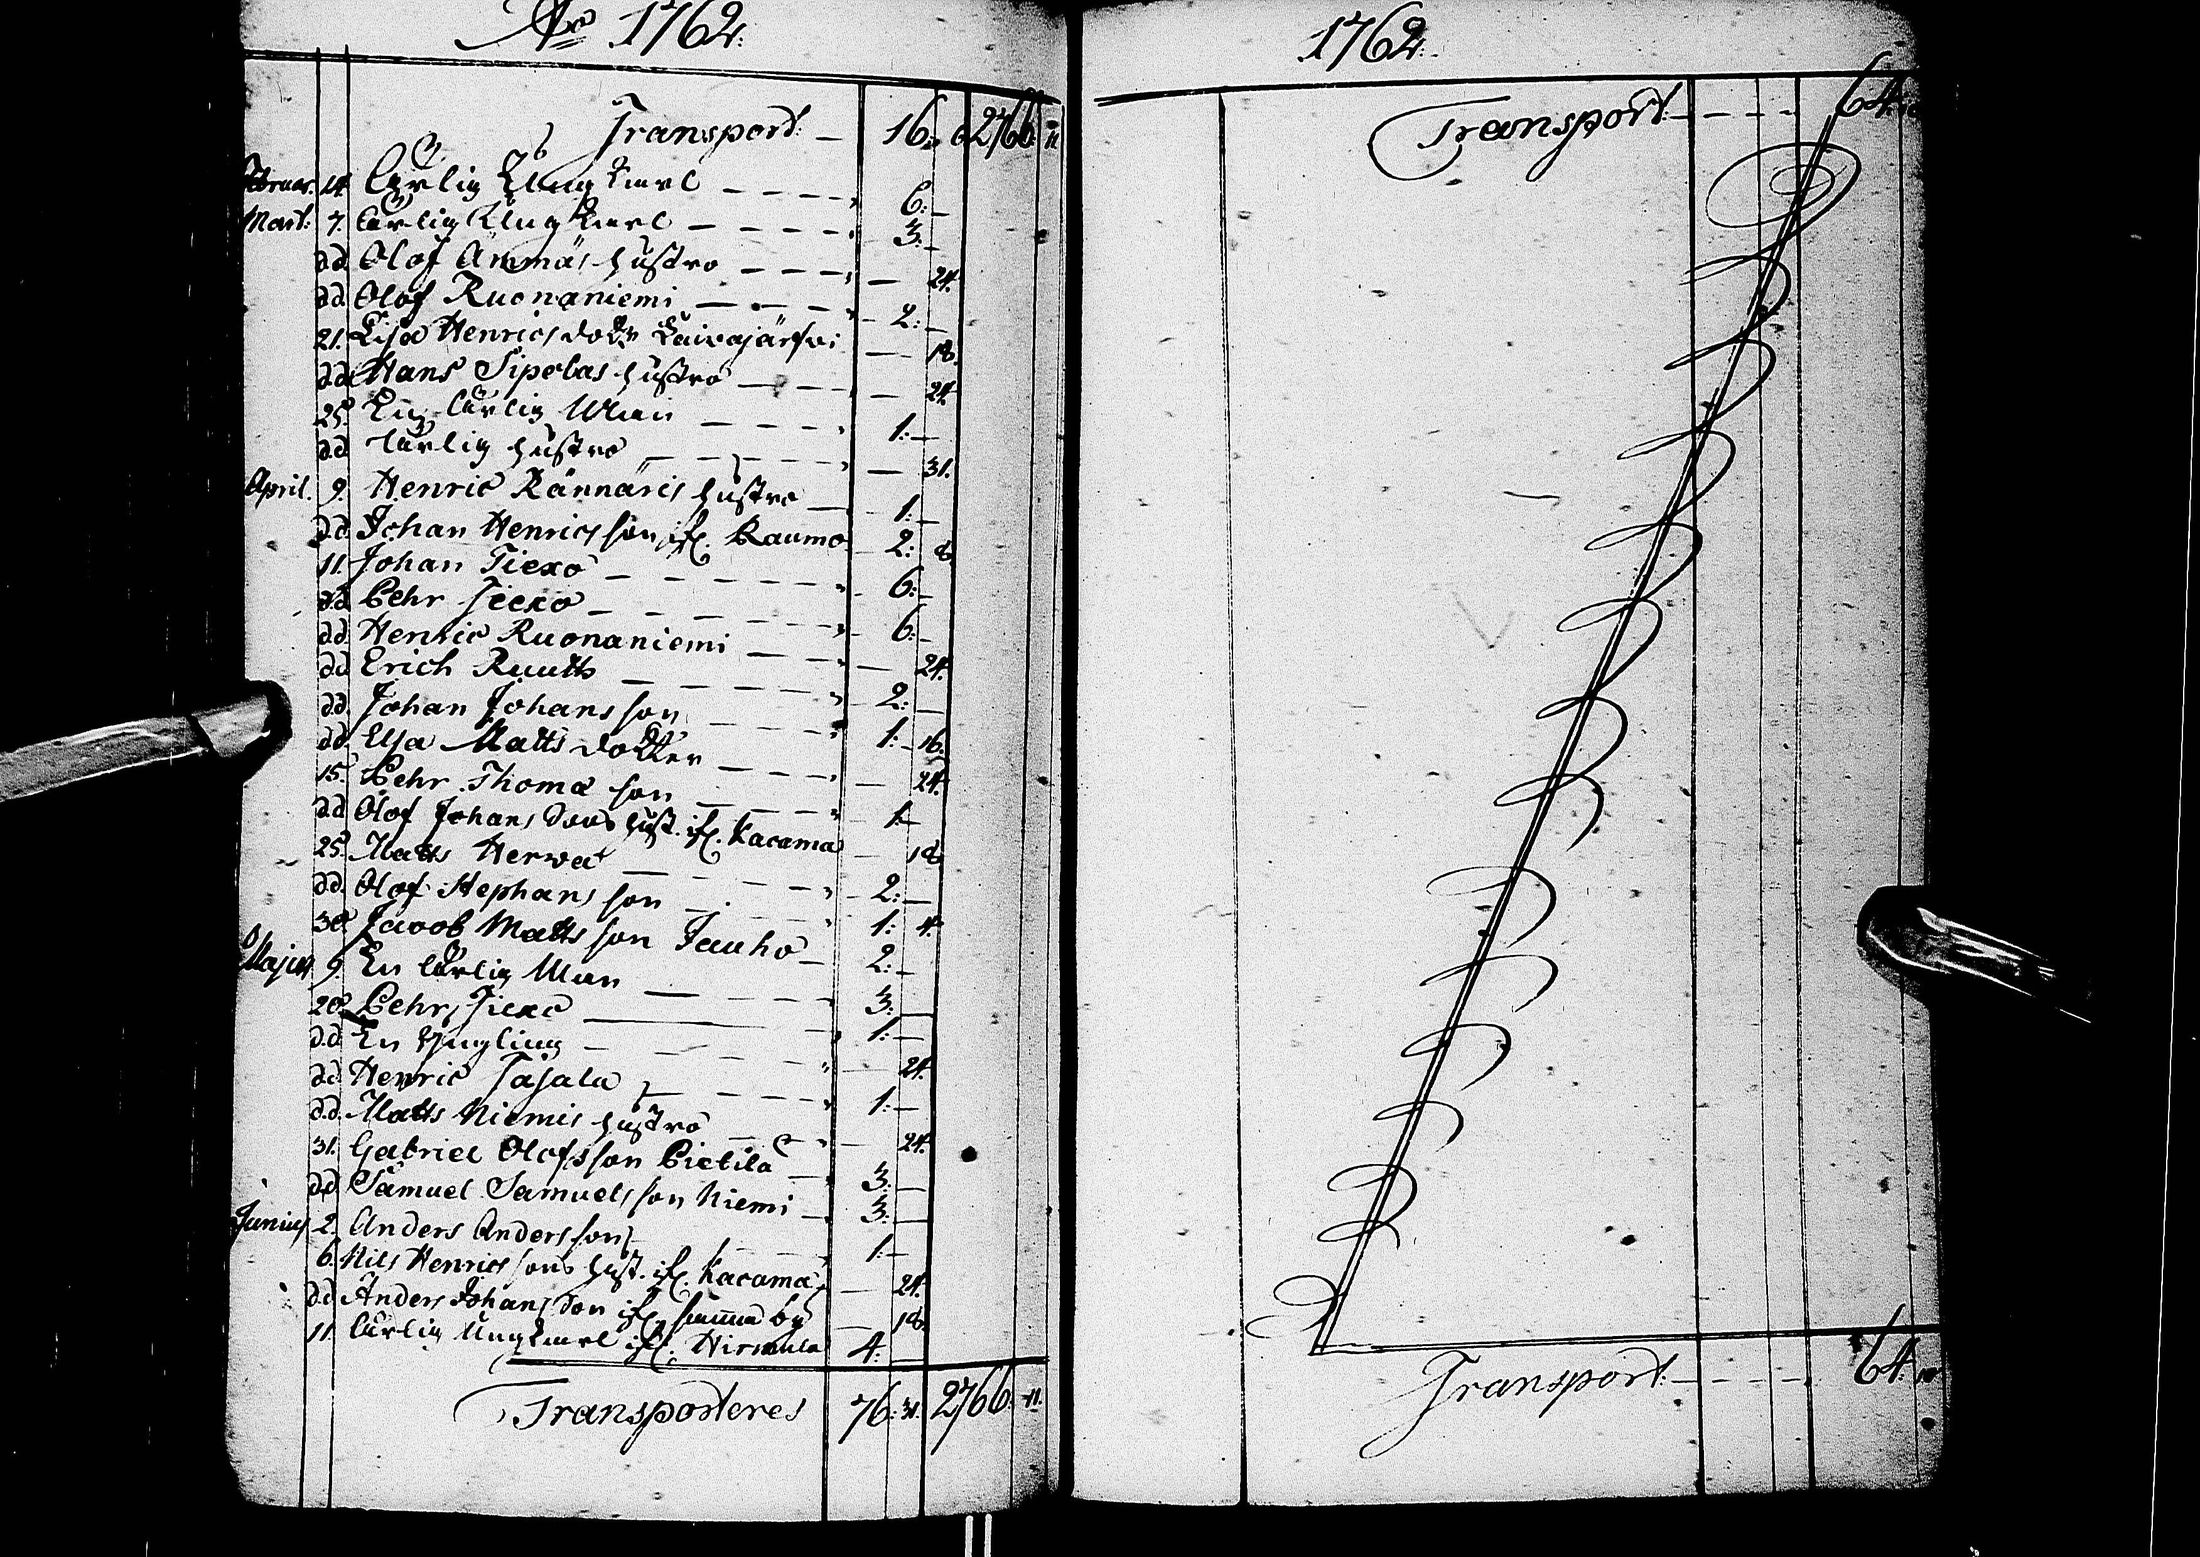 Aõ 1762.
Transport: — 16: 6 2766: 11
Februar. 14 Ärlig Ung karl — — — 6: —
Mart: 7. Ärlig Ung karl — — — — 3: —
dd Olof Ämmäs hustro — — — — — 24.
dd Olof Ruonaniemi — — — — 2: —
21. Lisa Henrics dott. Kaivajärfvi — 18.
dd Hans Sipolas hustro — — — 24.
25. En ärlig Man — — — — 1: —
dd ärlig hustro — — — — — 31.
April. 9. Henric Rännäris hustro — 1: —
dd Johan Henrics son if. Raumo 2: 8
11. Johan Tiexo — — — — 6: —
dd Pehr Tiexo — — — — 6: —
dd. Henric Ruonaniemi — — 6: —
dd Erich Ruuths — — — — — 24.
dd. Johan Johans son — — — 2: —
dd. Elsa Matts dotter — — — 1: 16.
15. Pehr Thomæ son — — — — 24.
dd Olof Johans sons hust. if. Kacama 1: —
25. Matts Herwa — — — — — 18
dd. Olof Stephans son — — — 2: —
30. Jacob Matts son Jauho — 1: 4.
Majus 9. En ärlig Man — — — 2: —
20. Pehr Tiexo — — — 3: —
d.d En Yngling — — — — 1: —
dd Henric Jajala — — — — — 24.
d.d. Matts Niemis hustro — — 1: —
31. Gabriel Olofsson Pietilä — — 24.
dd. Samuel Samuels son Niemi — 3: —
Junius 2. Anders Anders son — — — 3: —
6. Nils Henrics sons hust. if. Kacama 1: —
dd Anders Johans son if. samma by — 24.
11. ärlig Ung karl if. Hirmula — 18.
4: —
Transporteres 76: 31. 2766: 11.
1762.
Transport: — — — 64: 10
Transport: — — — 64: 10